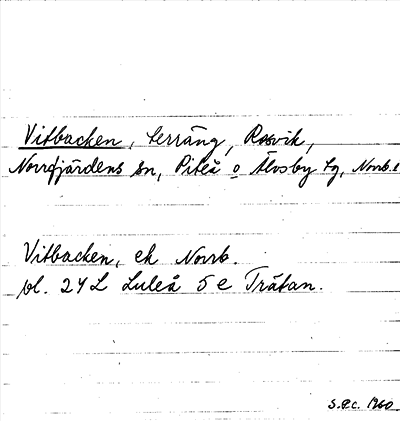 Vitbacken, terräng, Rosvik,
Norrfjärdens sn, Piteå o Älvsby tg, Norrb.l
Vitbacken, ek Norrb.
bl. 24L Luleå 5e Trätan.
S.P.C. 1960.